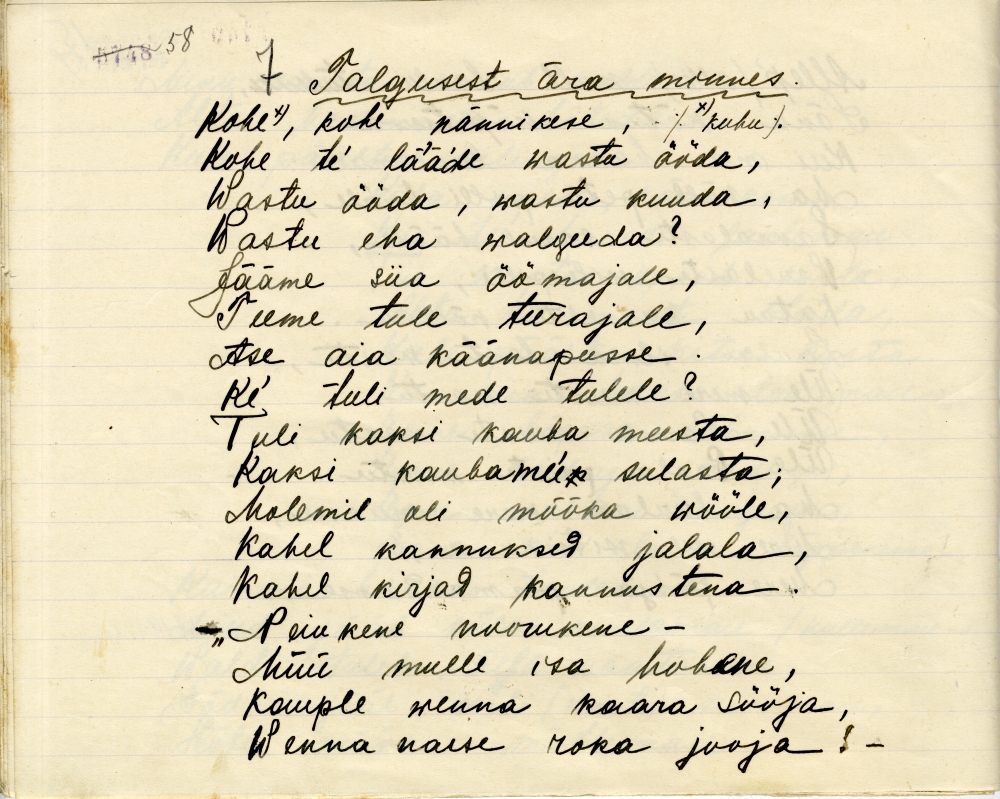 5748 58
7 Talgusest ära minnes.
Kohe ˣ⁾, kohe nännikese, ·/. ˣ⁾ kuhu /.
Kohe te' lää'de wastu ööda,
Wastu ööda, wastu kuuda,
Wastu eha walguda?
Jääme siia öömajale,
Teeme tule teerajale,
Ase aia käänapusse.
Ke' tuli mede tulele?
Tuli kaksi kauba meesta,
Kaksi kaubamee sulasta;
Molemil oli mõõka wööle,
Kahel kannuksed jalala,
Kahel kirjad kannustena.
— „Neiukene noorukene —
Müü mulle isa hobene,
Kauple wenna kaara sööja,
Wenna naese roka jooja! —